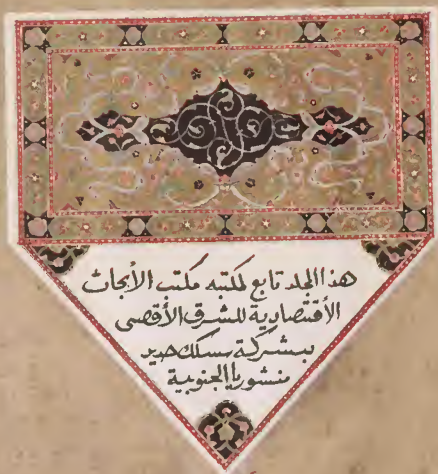 هذا المجلد تابع لمكتبه مكتب الأبحاث
الأقتصادية للشرق الأقصى
بشركة سسلك حديد
منشوريا الجنوبية